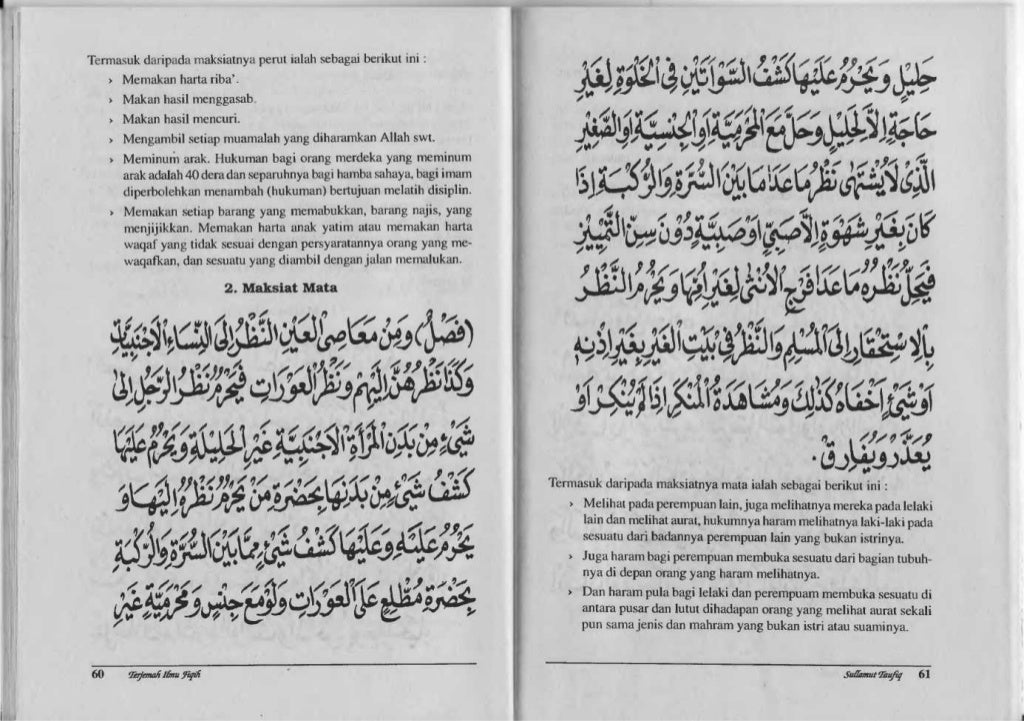 Termasuk daripada maksiatnya perut ialah sebagai berikut ini :
› Memakan harta riba'.
› Makan hasil menggasab.
› Makan hasil mencuri.
› Mengambil setiap muamalah yang diharamkan Allah swt.
› Meminum arak. Hukuman bagi orang merdeka yang meminum
arak adalah 40 dera dan separuhnya bagi hamba sahaya, bagi imam
diperbolehkan menambah (hukuman) bertujuan melatih disiplin.
› Memakan setiap barang yang memabukkan, barang najis, yang
menjijikkan. Memakan harta anak yatim atau memakan harta
waqaf yang tidak sesuai dengan persyaratannya orang yang me-
waqafkan, dan sesuatu yang diambil dengan jalan memalukan.
2. Maksiat Mata
(فَصْلٌ) وَمِنْ مَعَاصِى الْعَيْنِ النَّظْرُ إِلَى النِّسَاءِ الْاَجْنَبِيَّاتِ
وَكَذَا نَظْرُهُنَّ إِلَيْهِمْ وَنَظْرُ الْعَوْرَاتِ فَيَحْرُمُ نَظْرُ الرَّجُلِ إِلَى
شَيْءٍ مِنْ بَدَنِ الْمَرْأَةِ الْاَجْنَبِيَّةِ غَيْرِ الْحَلِيْلَةِ وَيَحْرُمُ عَلَيْهَا
كَشْفُ شَيْءٍ مِنْ بَدَنِهَا بِحَضْرَةِ مَنْ يَحْرُمُ نَظْرُهُ إِلَيْهَا وَ
يَحْرُمُ عَلَيْهِ وَعَلَيْهَا كَشْفُ شَيْءٍ مِمَّا بَيْنَ السُّرَّةِ وَالرُّكْبَةِ
بِحَضْرَةِ مُطَّلِعٍ عَلَى الْعَوْرَاتِ وَلَوْ مَعَ جِنْسٍ وَمَحْرَمِيَّةٍ غَيْرِ
60 Terjemah Ilmu Fiqih
حَلِيْلٍ وَيَحْرُمُ عَلَيْهَا كَشْفُ السَّوْاَتَيْنِ فِى الْخَلْوَةِ لِغَيْرِ
حَاجَةٍ إِلَّا لِحَلِيْلٍ وَحَلَّ مَعَ الْمَحْرَمِيَّةِ اَوِ الْجِنْسِيَّةِ اَوِ الصِّغَرِ
الَّذِى لَا يُشْتَهٰى نَظْرُ مَا عَدَا مَا بَيْنَ السُّرَّةِ وَالرُّكْبَةِ إِذَا
كَانَ بِغَيْرِ شَهْوَةٍ إِلَّا صَبِيٍّ اَوْ صَبِيَّةٍ دُوْنَ سِنِّ التَّمْيِيْزِ
فَيَحِلُّ نَظْرُهُ مَا عَدَا فَرْجِ الْاُنْثَى لِغَيْرِ اُمِّهَا وَيَحْرُمُ النَّظْرُ
بِالْاِسْتِحْقَارِ إِلَى الْمُسْلِمِ وَالنَّظْرُ فِى بَيْتِ الْغَيْرِ بِغَيْرِ إِذْنِهِ
اَوْ شَيْءٍ اَخْفَاهُ كَذٰلِكَ وَمُشَاهَدَةُ الْمُنْكَرِ إِذَا لَمْ يُنْكِرْ اَوْ
يُعَذَّرْ وَيُفَارِقْ.
Termasuk daripada maksiatnya mata ialah sebagai berikut ini :
› Melihat pada perempuan lain, juga melihatnya mereka pada lelaki
lain dan melihat aurat, hukumnya haram melihatnya laki-laki pada
sesuatu dari badannya perempuan lain yang bukan istrinya.
› Juga haram bagi perempuan membuka sesuatu dari bagian tubuh-
nya di depan orang yang haram melihatnya.
› Dan haram pula bagi lelaki dan perempuam membuka sesuatu di
antara pusar dan lutut dihadapan orang yang melihat aurat sekali
pun sama jenis dan mahram yang bukan istri atau suaminya.
Sullamut Taufiq 61